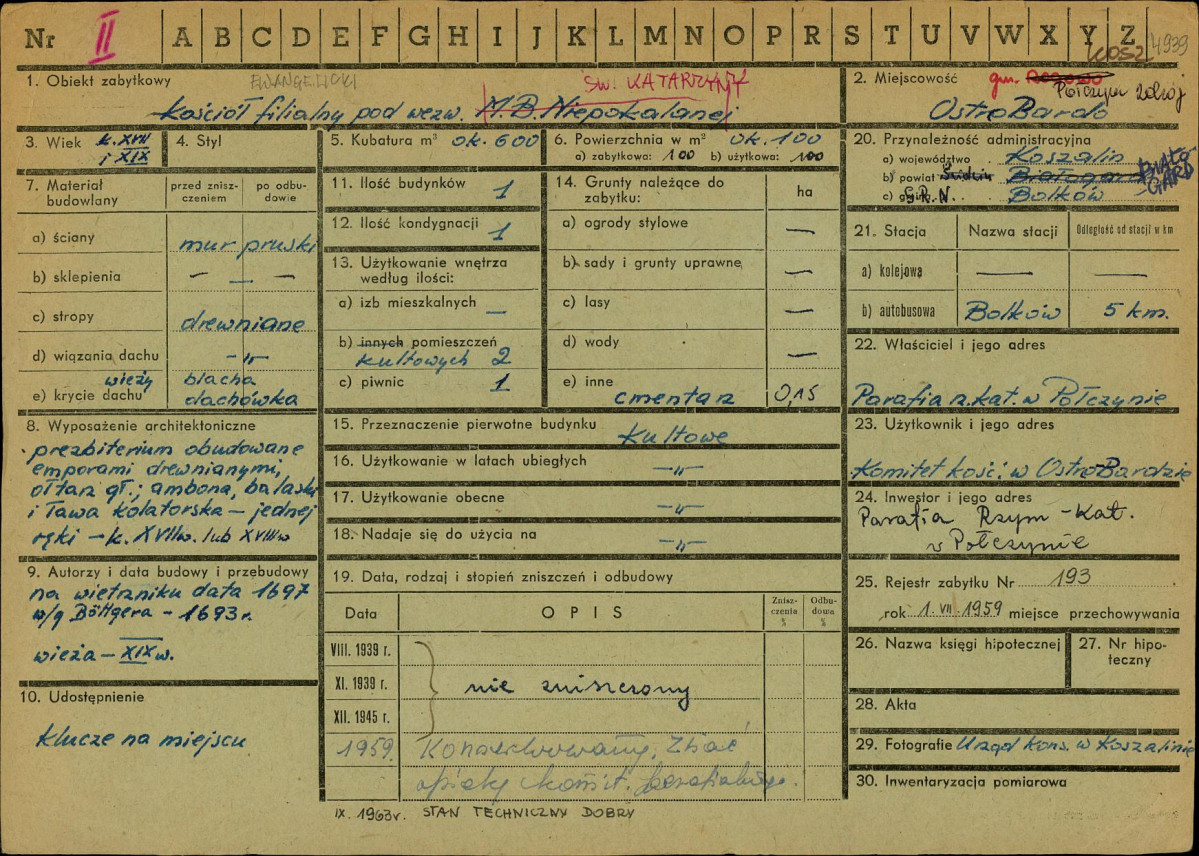 Nr II A B C D E F G H I J K L M N O P R S T U V W X Y Z 4939
KOSZ
1. Obiekt zabytkowy EWANGELICKI ŚW. KATARZYNY
Kościół filialny pod wezw. M.B. Niepokalanej
2. Miejscowość gm.
Połczyn Zdrój
OstroBardo
3. Wiek k. XVII
i XIX
4. Styl
5. Kubatura m³ ok. 600
6. Powierzchnia w m² ok. 100
a) zabytkowa: 100 b) użytkowa: 100
20. Przynależność administracyjna
a) województwo Koszalin
b) powiat Świdwin Białogard BIAŁO
GARD
c) G.R.N. Bołków
7. Materiał
budowlany
przed znisz-
czeniem
po odbu-
dowie
a) ściany mur pruski
b) sklepienia — — —
c) stropy drewniane
d) wiązania dachu -„-
wieży blacha
e) krycie dachu dachówka
11. Ilość budynków 1
12. Ilość kondygnacji 1
13. Użytkowanie wnętrza
według ilości:
a) izb mieszkalnych —
b) innych pomieszczeń
kultowych 2
c) piwnic 1
14. Grunty należące do
zabytku:
ha
a) ogrody stylowe —
b) sady i grunty uprawne —
c) lasy —
d) wody —
e) inne
cmentarz 0,15
21. Stacja Nazwa stacji Odległość od stacji w km
a) kolejowa — —
b) autobusowa Bołków 5 km.
22. Właściciel i jego adres
Parafia rz.kat. w Połczynie
8. Wyposażenie architektoniczne
prezbiterium obudowane
emporami drewnianymi,
ołtarz gł.; ambona, balaski
i ława kolatorska – jednej
ręki – k. XVII w. lub XVIII w
15. Przeznaczenie pierwotne budynku Kultowe
16. Użytkowanie w latach ubiegłych -„-
17. Użytkowanie obecne -„-
18. Nadaje się do użycia na -„-
23. Użytkownik i jego adres
Komitet kość. w OstroBardzie
24. Inwestor i jego adres
Parafia Rzym-Kat.
w Połczynie
9. Autorzy i data budowy i przebudowy
na wietrzniku data 1697
w/g Böttgera – 1693 r.
wieża – XIX w.
10. Udostępnienie
klucze na miejscu
19. Data, rodzaj i stopień zniszczeń i odbudowy
Data OPIS Znisz-
czenia
%
Odbu-
dowa
%
VIII. 1939 r.
XI. 1939 r. nie zniszczony
XII. 1945 r.
1959. Konserwowany. Zbać
opieką komit. parafialnego.
IX. 1963 r. STAN TECHNICZNY DOBRY
25. Rejestr zabytku Nr 193
rok 1.VII.1959 miejsce przechowywania
26. Nazwa księgi hipotecznej
27. Nr hipo-
teczny
28. Akta
29. Fotografie Urząd kons. w Koszalinie
30. Inwentaryzacja pomiarowa